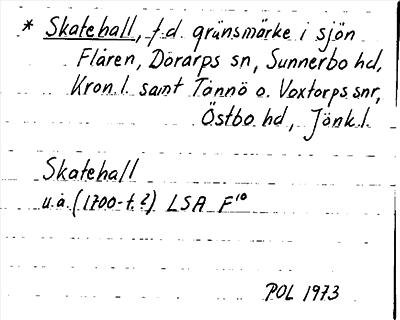 * Skatehall, f.d. gränsmärke i sjön
Flåren, Dörarps sn, Sunnerbo hd,
Kron.l. samt Tånnö o. Voxtorps snr,
Östbo hd, Jönk.l.
Skatehall
u.å. (1700-t.?) LSA F¹⁰
POL 1973